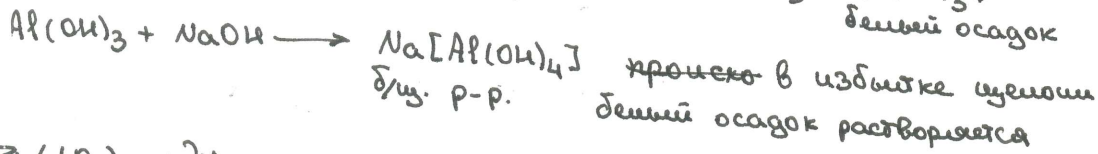 белый осадок
Al(OH)₃ + NaOH ⟶ Na[Al(OH)₄] ~~происхо~~ в избытке щелочи
б/цв. р-р. белый осадок растворяется